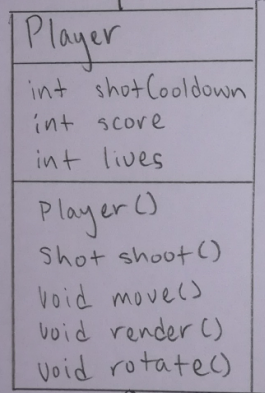 Player
int shotCooldown
int score
int lives
Player()
Shot shoot()
void move()
void render()
void rotate()